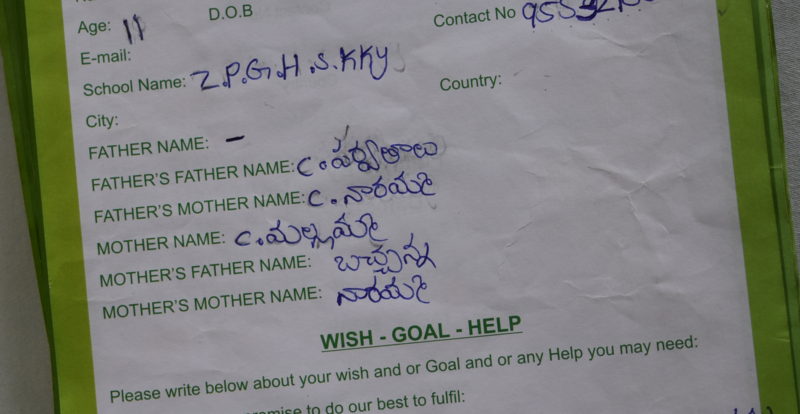 Age: 11 D.O.B Contact No
E-mail:
School Name: Z.P.G.H.S.KKY
Country:
City:
FATHER NAME: -
FATHER'S FATHER NAME: C. పర్వతాలు
FATHER'S MOTHER NAME: C. నారమ్మ
MOTHER NAME: C. మల్లమ్మ
MOTHER'S FATHER NAME: బాచ్చన్న
MOTHER'S MOTHER NAME: నారమ్మ
WISH - GOAL - HELP
Please write below about your wish and or Goal and or any Help you may need:
to do our best to fulfil: